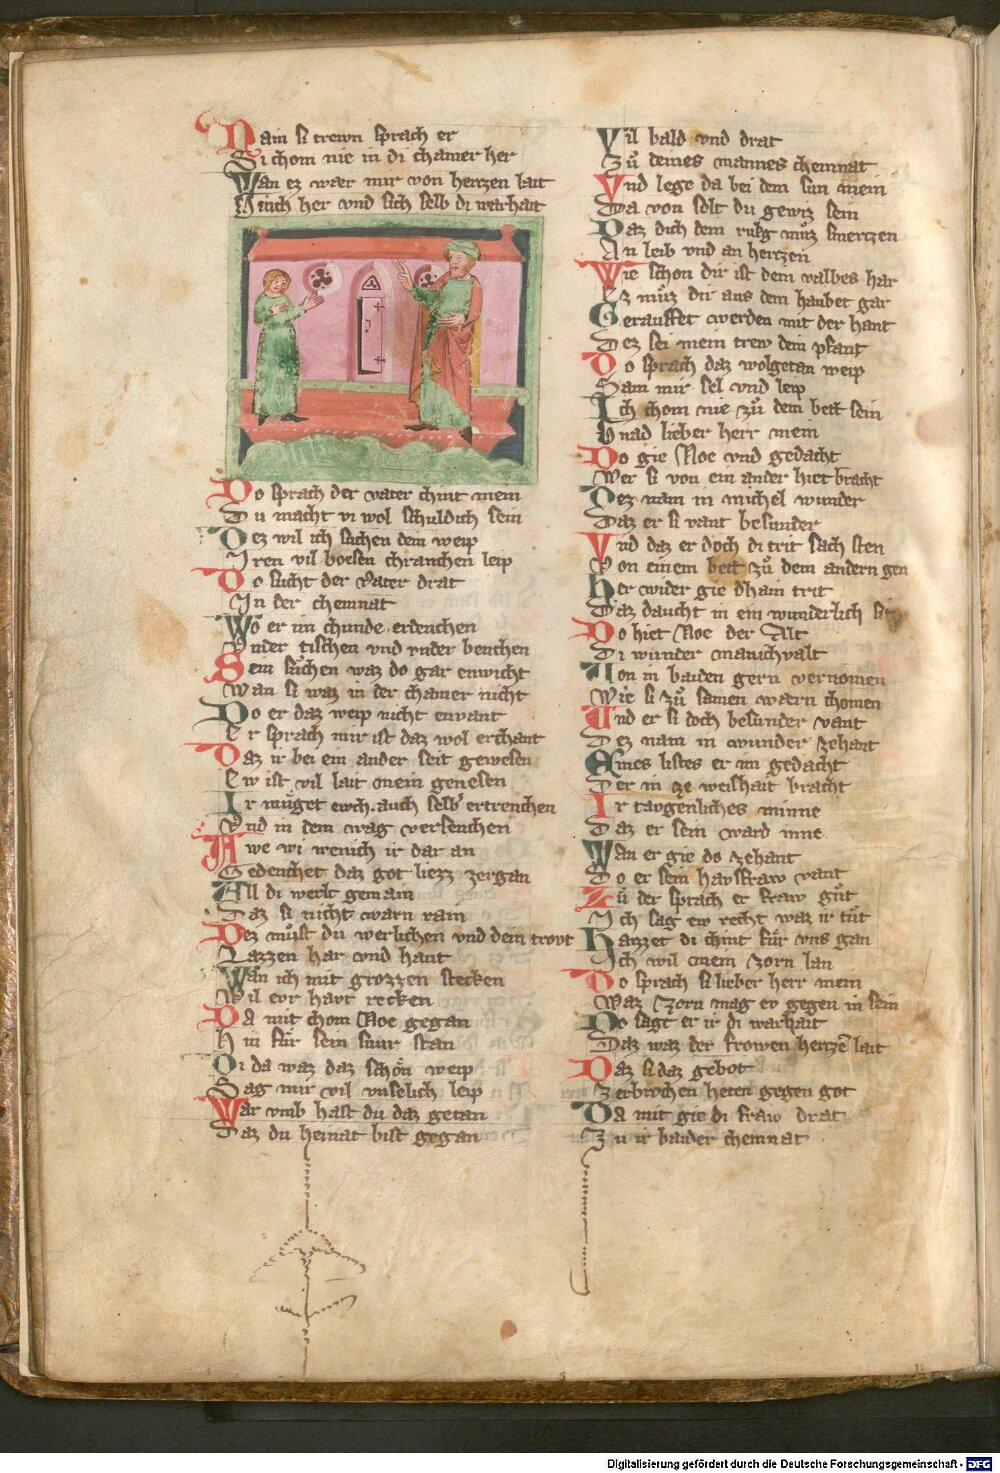 Nain si trewn sprach er
Si chom nie in di chamer her
Wan ez waer mir von hertzen lait
Ginch her vnd sich selb di warhait
Do sprach der vater chint mein
Du macht vi wol schuldich sein
Dez wil ich suchen dein weip
Iren vil boesen chranchen leip
Do sucht der Vater drat
In der chemnat
Wo er im chunde erdenchen
Vnder tischen vnd vnder benchen
Sein suchen waz do gar enwicht
Wan si waz in der chamer nicht
Do er daz weip nicht envant
Er sprach mir ist daz wol erchant
Daz ir bei ein ander seit gewesen
Ew ist vil lait mein genesen
Ir müget ewch auch selb ertrenchen
Vnd in dem wag versenchen
Awe wi wenich ir dar an
Gedenchet daz got liezz zergan
All di werlt gemain
Daz si nicht warn rain
Dez müst du werlichen vnd dein trovt
Lazzen har vnd haut
Wan ich mit grozzen stecken
Wil evr havt recken
Da mit chom Noe gegan
Hin für sein snur stan
Di da waz daz schön weip
Sag mir vil vnselich leip
War vmb hast du daz getan
Daz du heinat bist gegan
Vil bald vnd drat
Zů deines mannes chemnat
Vnd lege da bei dem sun mein
Da von solt du gewiz sein
Daz dich dem rukg můz smertzen
An leib vnd an hertzen
Wie schon dir ist dem valbes har
Ez můz dir aus dem haubet gar
Gerauffet werden mit der hant
Dez sei mein trew dein pfant
Do sprach daz wolgetan weip
Sam mir sel vnd leip
Ich chom nie zů dem bett sein
Gnad lieber herr mein
Do gie Noe vnd gedacht
Wer si von ein ander hiet bracht
Dez nam in michel wunder
Daz er si vant besunder
Vnd daz er doch di trit sach sten
Von einem bett zů dem andern gen
Her wider gie dhain trit
Daz daucht in ein wunderlich sit
Do hiet Noe der Alt
Di wunder manichvalt
Von in baiden gern vernomen
Wie si zů samen waern chomen
Vnd er si doch besunder vant
Dez nam in wunder zehant
Aines listes er im gedacht
Der in ze weishait bracht
Ir taugenliches minne
Daz er sein ward inne
Wan er gie do zehant
Do er sein havsfraw vant
Zů der sprach er fraw gůt
Ich sag ew recht waz ir tůt
Hazzet di chint für vns gan
Ich wil meim zorn lan
Do sprach si lieber herr mein
Waz zorn mag ev gegen in sein
Do sagt er ir di warhait
Daz waz der frowen hertze lait
Daz si daz gebot
Zerbrochen heten gegen got
Da mit gie di fraw drat
Zu ir baider chemnat
Digitalisierung gefördert durch die Deutsche Forschungsgemeinschaft - DFG